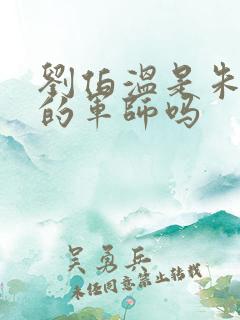 劉伯溫是朱
的軍師嗎
吴勇兵
未经同意禁止转载